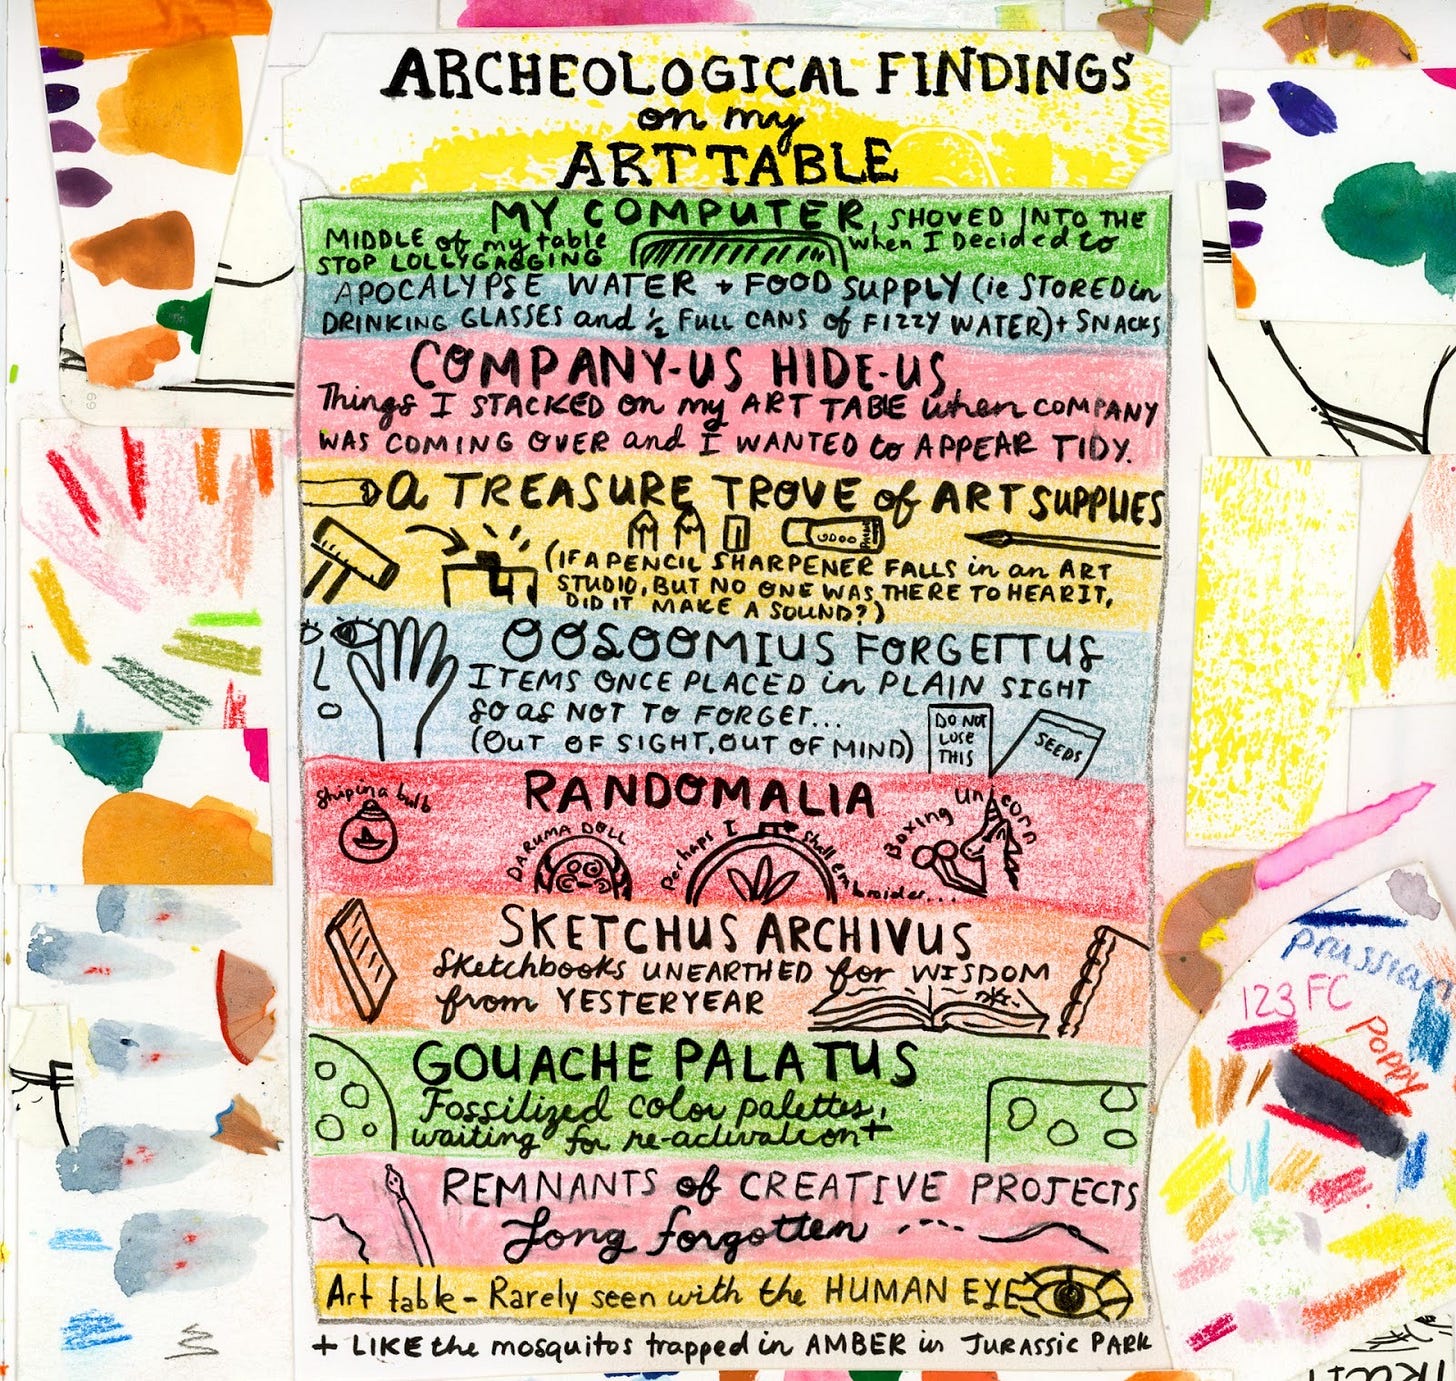 ARCHEOLOGICAL FINDINGS
on my
ART TABLE
MY COMPUTER, SHOVED INTO THE
MIDDLE of my table when I Decided to
STOP LOLLYGAGGING
APOCALYPSE WATER + FOOD SUPPLY (ie STORED in
DRINKING GLASSES and ½ FULL CANS of FIZZY WATER) + SNACKS
COMPANY-US HIDE-US,
Things I STACKED on my ART TABLE when COMPANY
WAS COMING OVER and I WANTED to APPEAR TIDY.
A TREASURE TROVE of ART SUPPLIES
(IF A PENCIL SHARPENER FALLS in an ART
STUDIO, BUT NO ONE WAS THERE TO HEAR IT,
DID IT MAKE A SOUND?)
OOSOOMIUS FORGETTUS
ITEMS ONCE PLACED in PLAIN SIGHT
SO as NOT TO FORGET...
(OUT OF SIGHT, OUT OF MIND)
DO NOT
LOSE
THIS
SEEDS
RANDOMALIA
Ship in a bulb
DARUMA DOLL
Perhaps I shall embroider...
Boxing unicorn
SKETCHUS ARCHIVUS
Sketchbooks UNEARTHED for WISDOM
from YESTERYEAR
GOUACHE PALATUS
Fossilized color palettes,
waiting for re-activation+
REMNANTS of CREATIVE PROJECTS
Long forgotten
Art table - Rarely seen with the HUMAN EYE
+ LIKE the mosquitos trapped in AMBER in JURASSIC PARK
69
Prussian
123 FC
POPPY